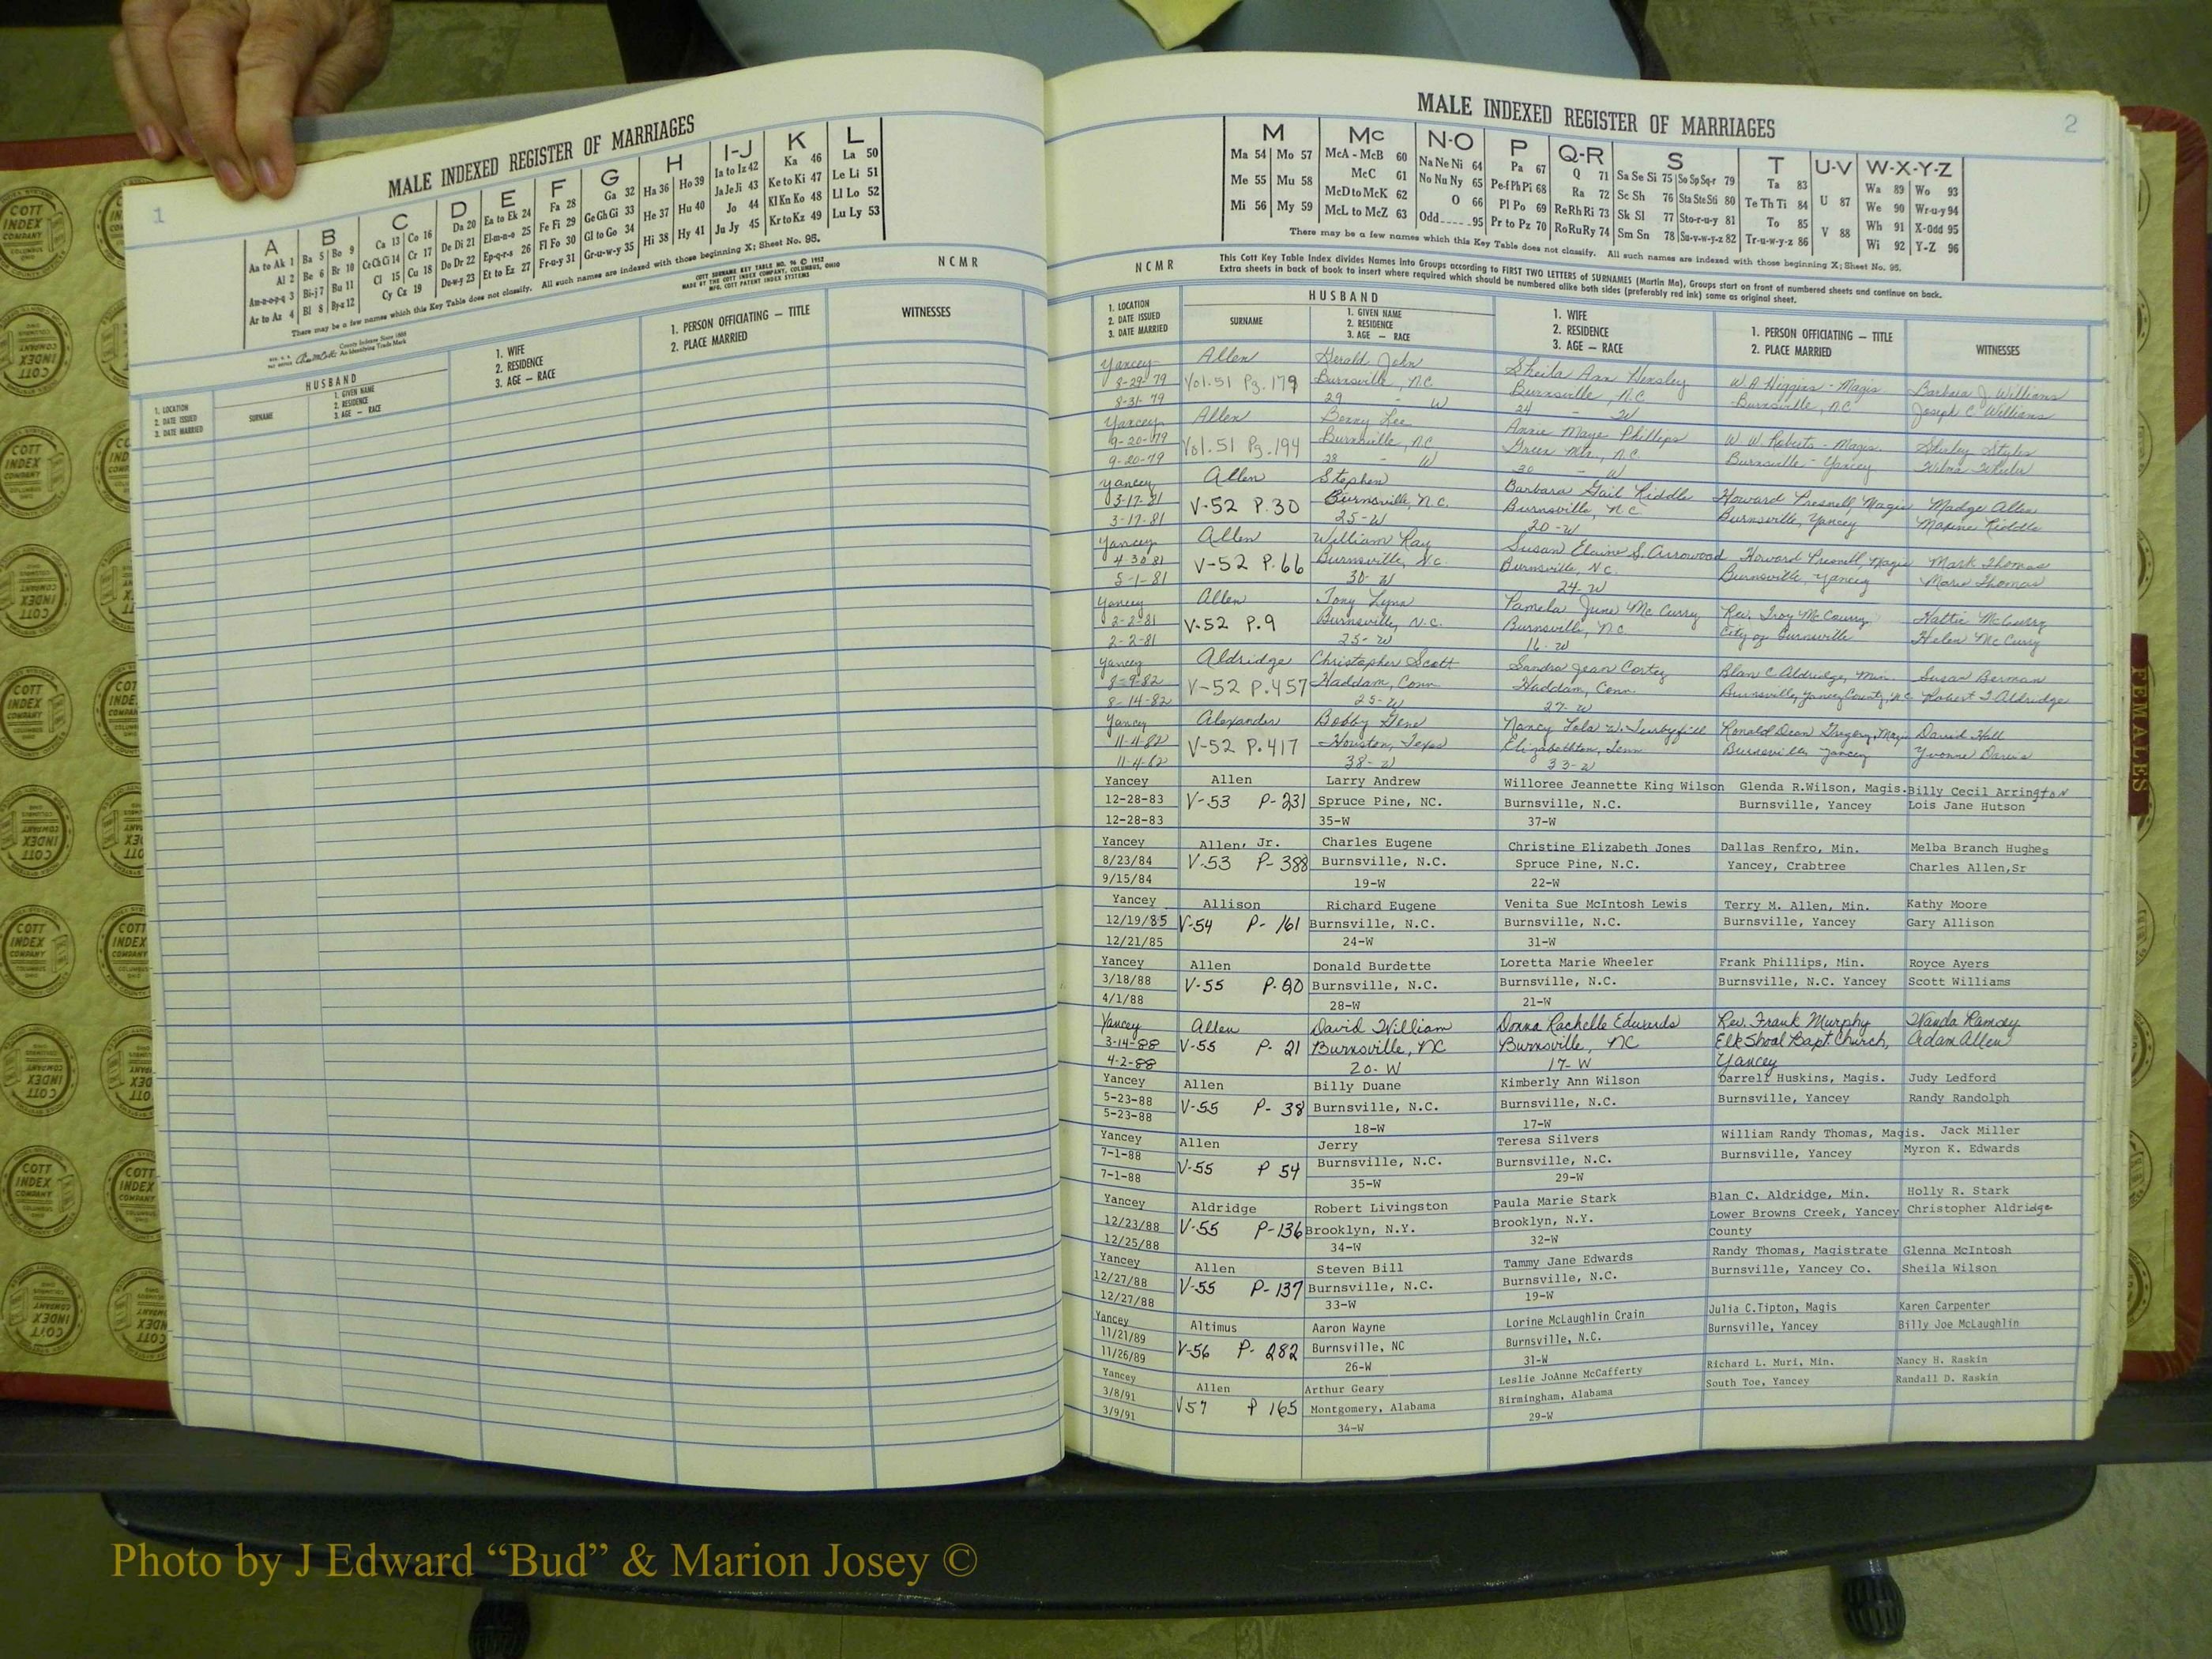 1
MALE INDEXED REGISTER OF MARRIAGES
A B C D E F G H I-J K L
Aa to Ak 1 Ba 5 Bo 9 Ca 13 Co 16 Da 20 Ea to Ek 24 Fa 28 Ga 32 Ha 36 Ho 39 Ia to Iz 42 Ka 46 La 50
Al 2 Be 6 Br 10 Ce Ch Ci 14 Cr 17 De Di 21 El-m-n-o 25 Fe Fi 29 Ge Gh Gi 33 He 37 Hu 40 Ja Je Ji 43 Ke to Ki 47 Le Li 51
Am-n-o-p-q 3 Bi-j 7 Bu 11 Cl 15 Cu 18 Do Dr 22 Ep-q-r-s 26 Fl Fo 30 Gl to Go 34 Hi 38 Hy 41 Jo 44 Kl Kn Ko 48 Ll Lo 52
Ar to Az 4 Bl 8 By-z 12 Cy Cz 19 Du-w-y 23 Et to Ez 27 Fr-u-y 31 Gr-u-w-y 35 Ju Jy 45 Kr to Kz 49 Lu Ly 53
There may be a few names which this Key Table does not classify. All such names are indexed with those beginning X; Sheet No. 95.
COTT SURNAME KEY TABLE NO. 96 © 1952
MADE BY THE COTT INDEX COMPANY, COLUMBUS, OHIO
MFG. COTT PATENT INDEX SYSTEMS
NCMR
County Indexes Since 1888
An Identifying Trade Mark
HUSBAND
1. LOCATION
2. DATE ISSUED
3. DATE MARRIED
SURNAME
1. GIVEN NAME
2. RESIDENCE
3. AGE — RACE
1. WIFE
2. RESIDENCE
3. AGE — RACE
1. PERSON OFFICIATING — TITLE
2. PLACE MARRIED
WITNESSES
MALE INDEXED REGISTER OF MARRIAGES
2
M Mc N-O P Q-R S T U-V W-X-Y-Z
Ma 54 Mo 57 McA - McB 60 Na Ne Ni 64 Pa 67 Q 71 Sa Se Si 75 So Sp Sq-r 79 Ta 83 U 87 Wa 89 Wo 93
Me 55 Mu 58 McC 61 No Nu Ny 65 Pe-f Ph Pi 68 Ra 72 Sc Sh 76 Sta Ste Sti 80 Te Th Ti 84 V 88 We 90 Wr-u-y 94
Mi 56 My 59 McD to McK 62 O 66 Pl Po 69 Re Rh Ri 73 Sk Sl 77 Sto-r-u-y 81 To 85 Wh 91 X-Odd 95
McL to McZ 63 Odd 95 Pr to Pz 70 Ro Ru Ry 74 Sm Sn 78 Su-v-w-y-z 82 Tr-u-w-y-z 86 Wi 92 Y-Z 96
There may be a few names which this Key Table does not classify. All such names are indexed with those beginning X; Sheet No. 95.
NCMR
This Cott Key Table Index divides Names into Groups according to FIRST TWO LETTERS of SURNAMES (Martin Ma), Groups start on front of numbered sheets and continue on back.
Extra sheets in back of book to insert where required which should be numbered alike both sides (preferably red ink) same as original sheet.
HUSBAND
1. LOCATION
2. DATE ISSUED
3. DATE MARRIED
SURNAME
1. GIVEN NAME
2. RESIDENCE
3. AGE — RACE
1. WIFE
2. RESIDENCE
3. AGE — RACE
1. PERSON OFFICIATING — TITLE
2. PLACE MARRIED
WITNESSES
Yancey Allen Gerald John Sheila Ann Hensley W.A. Higgins - Magis Barbara J. Williams
8-29-79 Vol. 51 Pg. 179 Burnsville, NC Burnsville, N.C. Burnsville, NC Joseph C. Williams
8-31-79 29 - W 24 - W
Yancey Allen Benny Lee Annie Maye Phillips W.W. Roberts - Magis. Shirley Styles
9-20-79 Vol. 51 Pg. 194 Burnsville, NC Green Mtn., N.C. Burnsville - Yancey Wilma
9-20-79 28 - W 30 - W
Yancey Allen Stephen Barbara Gail Riddle Howard Presnell, Magis Madge Allen
3-17-81 V-52 P.30 Burnsville, N.C. Burnsville, NC Burnsville, Yancey Maxine Riddle
3-17-81 25-W 20-W
Yancey Allen William Ray Susan Elaine S. Arrowood Howard Presnell, Magis Mark Thomas
4 30 81 V-52 P.66 Burnsville, N.C. Burnsville, N.C. Burnsville, Yancey Marie Thomas
5-1-81 30-W 24-W
Yancey Allen Tony Lynn Pamela June McCurry Rev. Troy McCourry Hattie McCurry
2-2-81 V-52 P.9 Burnsville, N.C. Burnsville, N.C. City of Burnsville Helen McCurry
2-2-81 25-W 16-W
Yancey Aldridge Christopher Scott Sandra Jean Cortey Blan C. Aldridge, Min. Susan Berman
8-9-82 V-52 P.457 Haddam, Conn. Haddam, Conn. Burnsville, Yancey County, N.C. Robert L Aldridge
8-14-82 25-W 27-W
Yancey Alexander Bobby Gene Nancy Lola W. Turbyfill Ronald Dean Gregory, Magis David Hall
11-4-82 V-52 P.417 Houston, Texas Elizabethton, Tenn Burnsville, Yancey Yvonne Davis
11-4-82 38-W 33-W
Yancey Allen Larry Andrew Willoree Jeannette King Wilson Glenda R.Wilson, Magis. Billy Cecil Arrington
12-28-83 V-53 P-231 Spruce Pine, NC. Burnsville, N.C. Burnsville, Yancey Lois Jane Hutson
12-28-83 35-W 37-W
Yancey Allen, Jr. Charles Eugene Christine Elizabeth Jones Dallas Renfro, Min. Melba Branch Hughes
8/23/84 V-53 P-388 Burnsville, N.C. Spruce Pine, N.C. Yancey, Crabtree Charles Allen,Sr
9/15/84 19-W 22-W
Yancey Allison Richard Eugene Venita Sue McIntosh Lewis Terry M. Allen, Min. Kathy Moore
12/19/85 V-54 P-161 Burnsville, N.C. Burnsville, N.C. Burnsville, Yancey Gary Allison
12/21/85 24-W 31-W
Yancey Allen Donald Burdette Loretta Marie Wheeler Frank Phillips, Min. Royce Ayers
3/18/88 V-55 P-20 Burnsville, N.C. Burnsville, N.C. Burnsville, N.C. Yancey Scott Williams
4/1/88 28-W 21-W
Yancey Allen David William Donna Rachelle Edwards Rev. Frank Murphy Wanda Ramsey
3-14-88 V-55 P-21 Burnsville, NC Burnsville, NC Elk Shoal Bapt. Church, Adam Allen
4-2-88 20-W 17-W Yancey
Yancey Allen Billy Duane Kimberly Ann Wilson Darrell Huskins, Magis. Judy Ledford
5-23-88 V-55 P-38 Burnsville, N.C. Burnsville, N.C. Burnsville, Yancey Randy Randolph
5-23-88 18-W 17-W
Yancey Allen Jerry Teresa Silvers William Randy Thomas, Magis. Jack Miller
7-1-88 V-55 P 54 Burnsville, N.C. Burnsville, N.C. Burnsville, Yancey Myron K. Edwards
7-1-88 35-W 29-W
Yancey Aldridge Robert Livingston Paula Marie Stark Blan C. Aldridge, Min. Holly R. Stark
12/23/88 V-55 P-136 Brooklyn, N.Y. Brooklyn, N.Y. Lower Browns Creek, Yancey Christopher Aldridge
12/25/88 34-W 32-W County
Yancey Allen Steven Bill Tammy Jane Edwards Randy Thomas, Magistrate Glenna McIntosh
12/27/88 V-55 P-137 Burnsville, N.C. Burnsville, N.C. Burnsville, Yancey Co. Sheila Wilson
12/27/88 33-W 19-W
Yancey Altimus Aaron Wayne Lorine McLaughlin Crain Julia C.Tipton, Magis Karen Carpenter
11/21/89 V-56 P-282 Burnsville, NC Burnsville, N.C. Burnsville, Yancey Billy Joe McLaughlin
11/26/89 26-W 31-W
Yancey Allen Arthur Geary Leslie JoAnne McCafferty Richard L. Muri, Min. Nancy H. Raskin
3/8/91 V57 P 165 Montgomery, Alabama Birmingham, Alabama South Toe, Yancey Randall D. Raskin
3/9/91 34-W 29-W
FEMALES
COTT INDEX COMPANY
COLUMBUS OHIO
Photo by J Edward “Bud” & Marion Josey ©